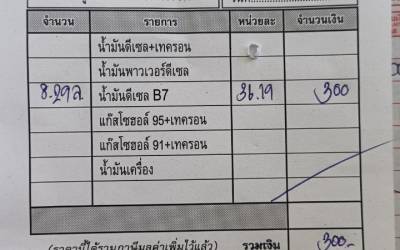 จำนวน รายการ หน่วยละ จำนวนเงิน
น้ำมันดีเซล+เทครอน
น้ำมันพาวเวอร์ดีเซล
8.29ล. น้ำมันดีเซล B7 36.19 300
แก๊สโซฮอล์ 95+เทครอน
แก๊สโซฮอล์ 91+เทครอน
น้ำมันเครื่อง
(ราคานี้ได้รวมภาษีมูลค่าเพิ่มไว้แล้ว) รวมเงิน 300-